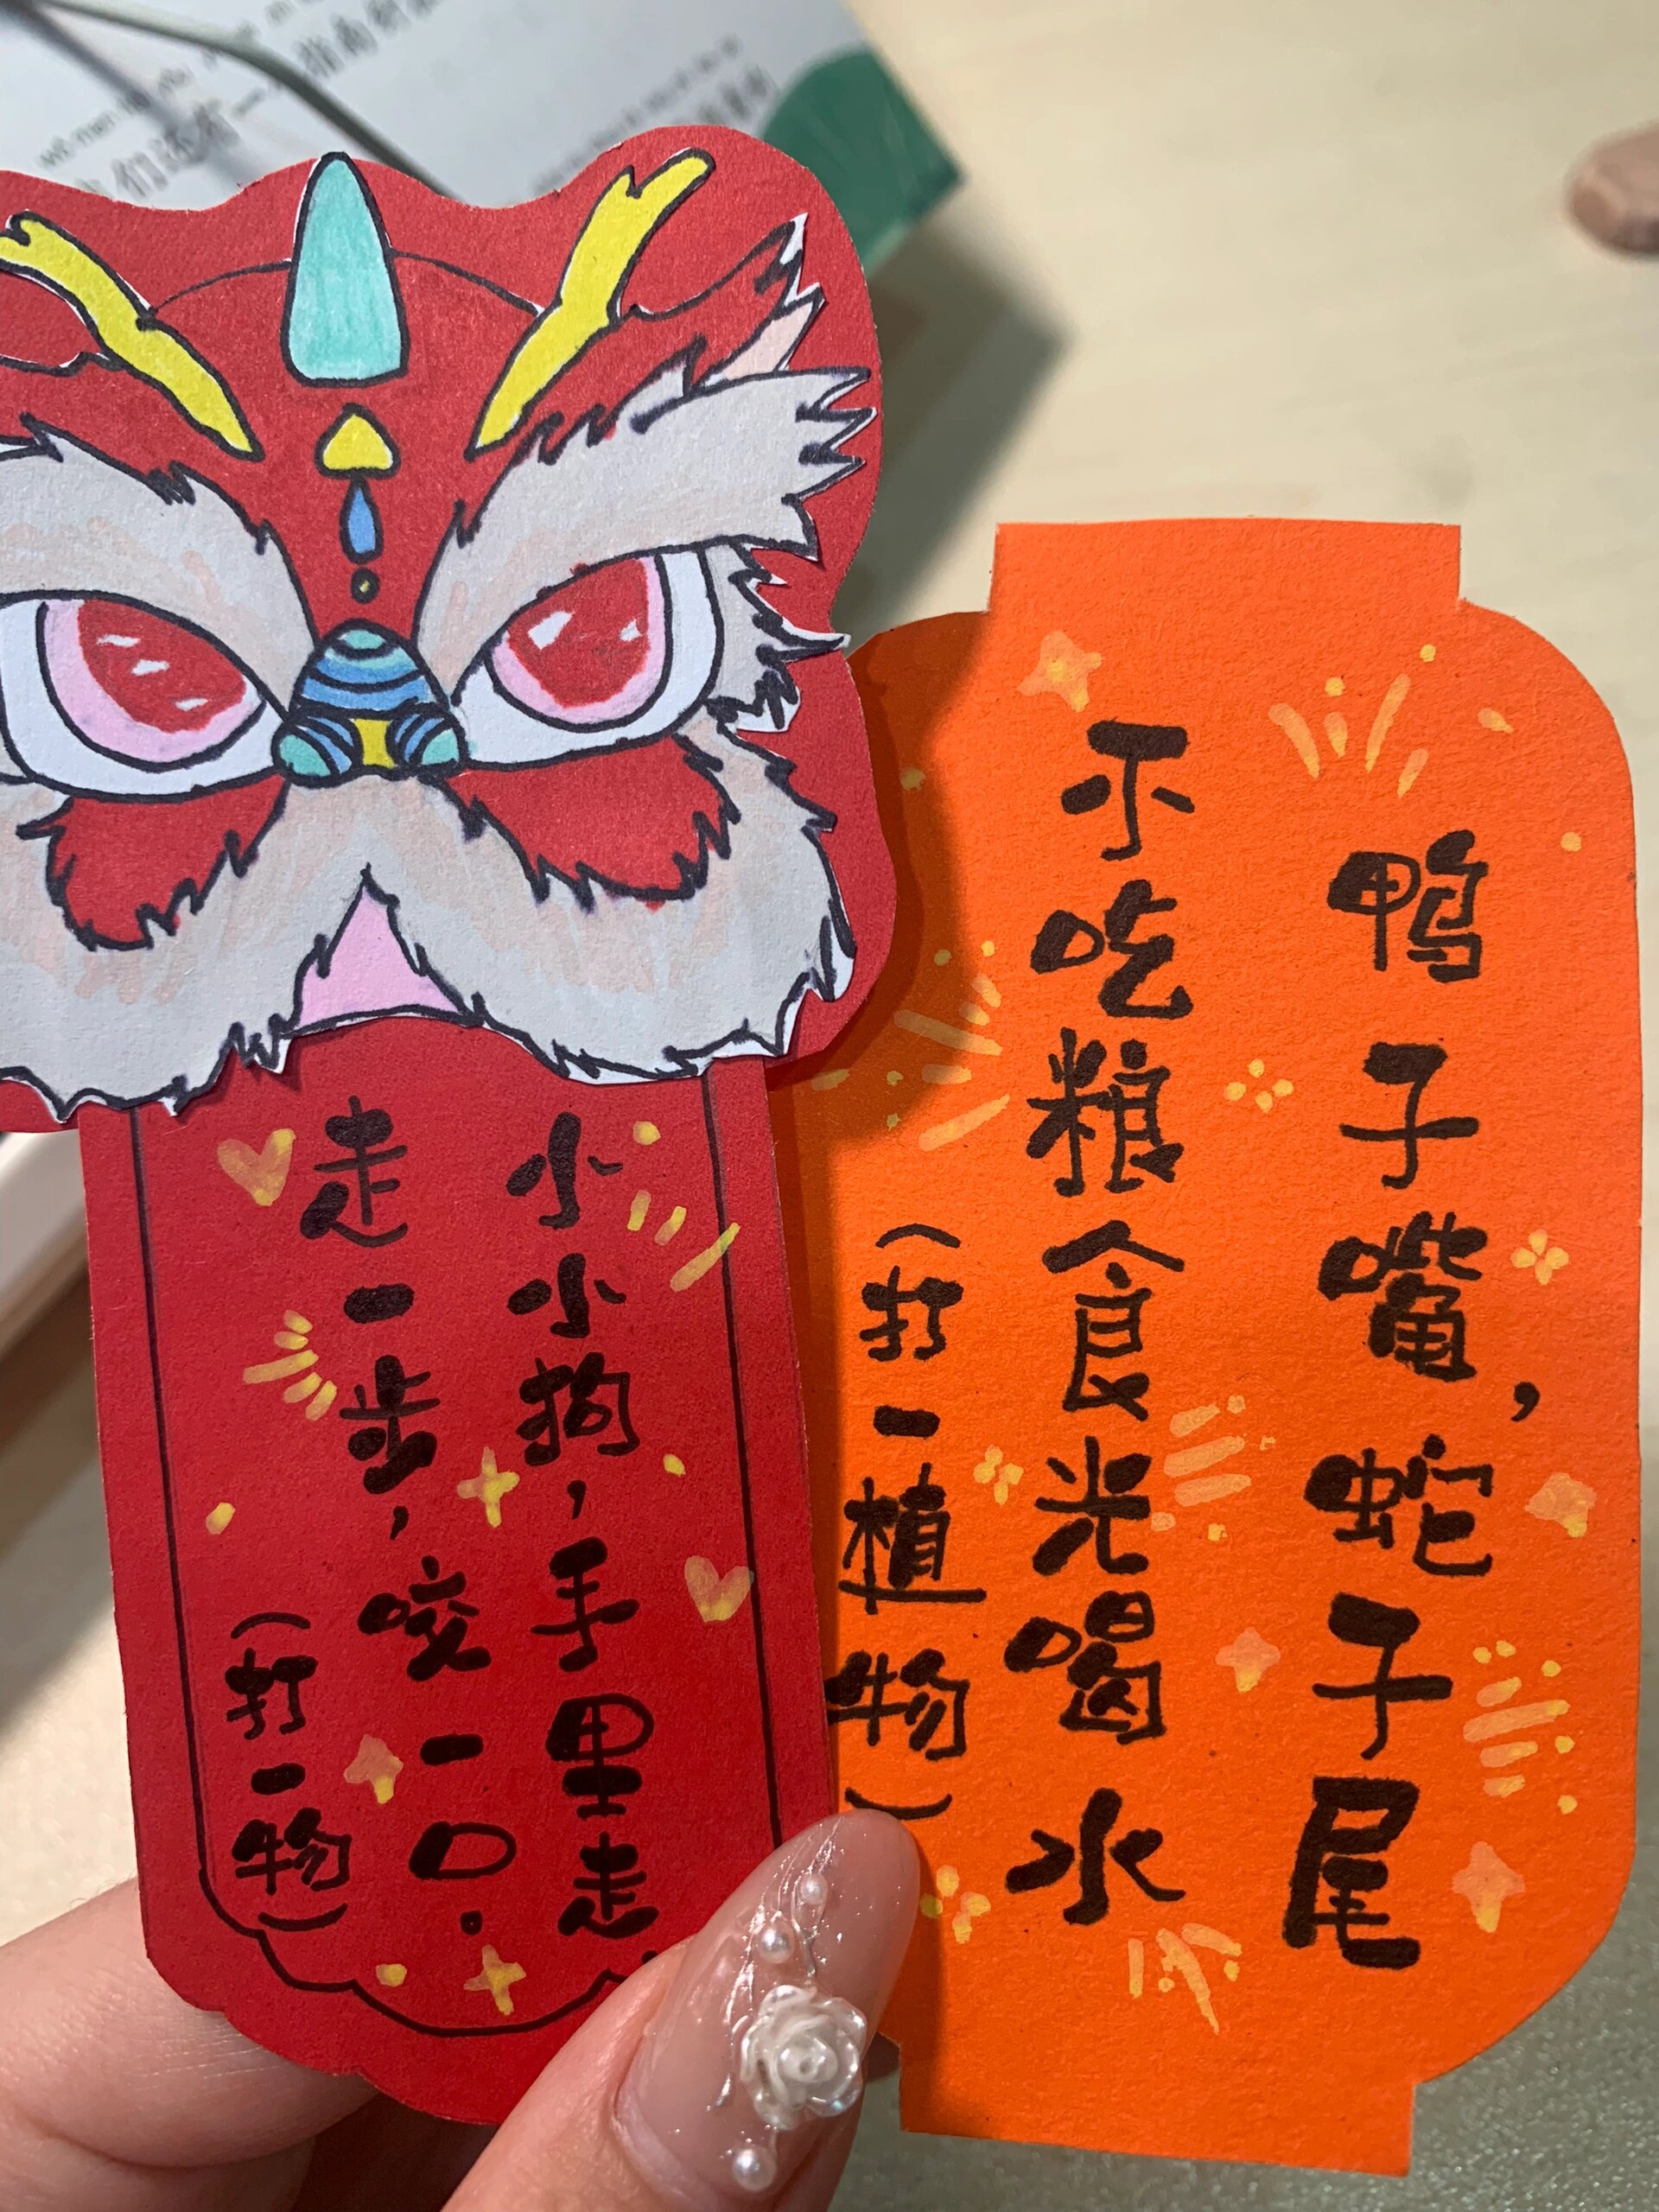 们还有一
指南
小小狗，手里走
走一步，咬一口。
（打一物）
鸭子嘴，蛇子尾
不吃粮食光喝水
（打一植物）